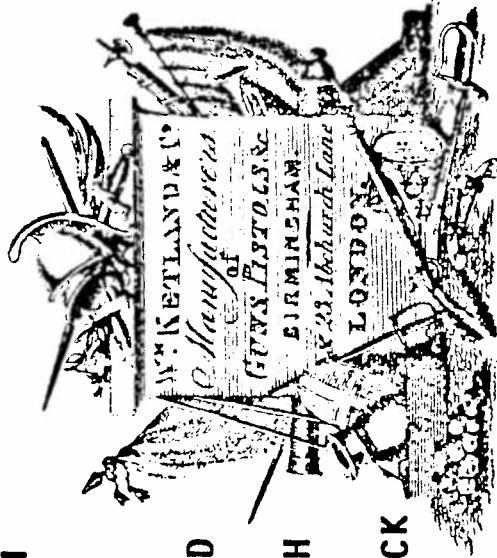 I
Wm. KETLAND & Co.
Manufacturers
D
of
GUNS PISTOLS &c.
H
BIRMINGHAM.
& 23, Abchurch Lane
LONDON.
CK